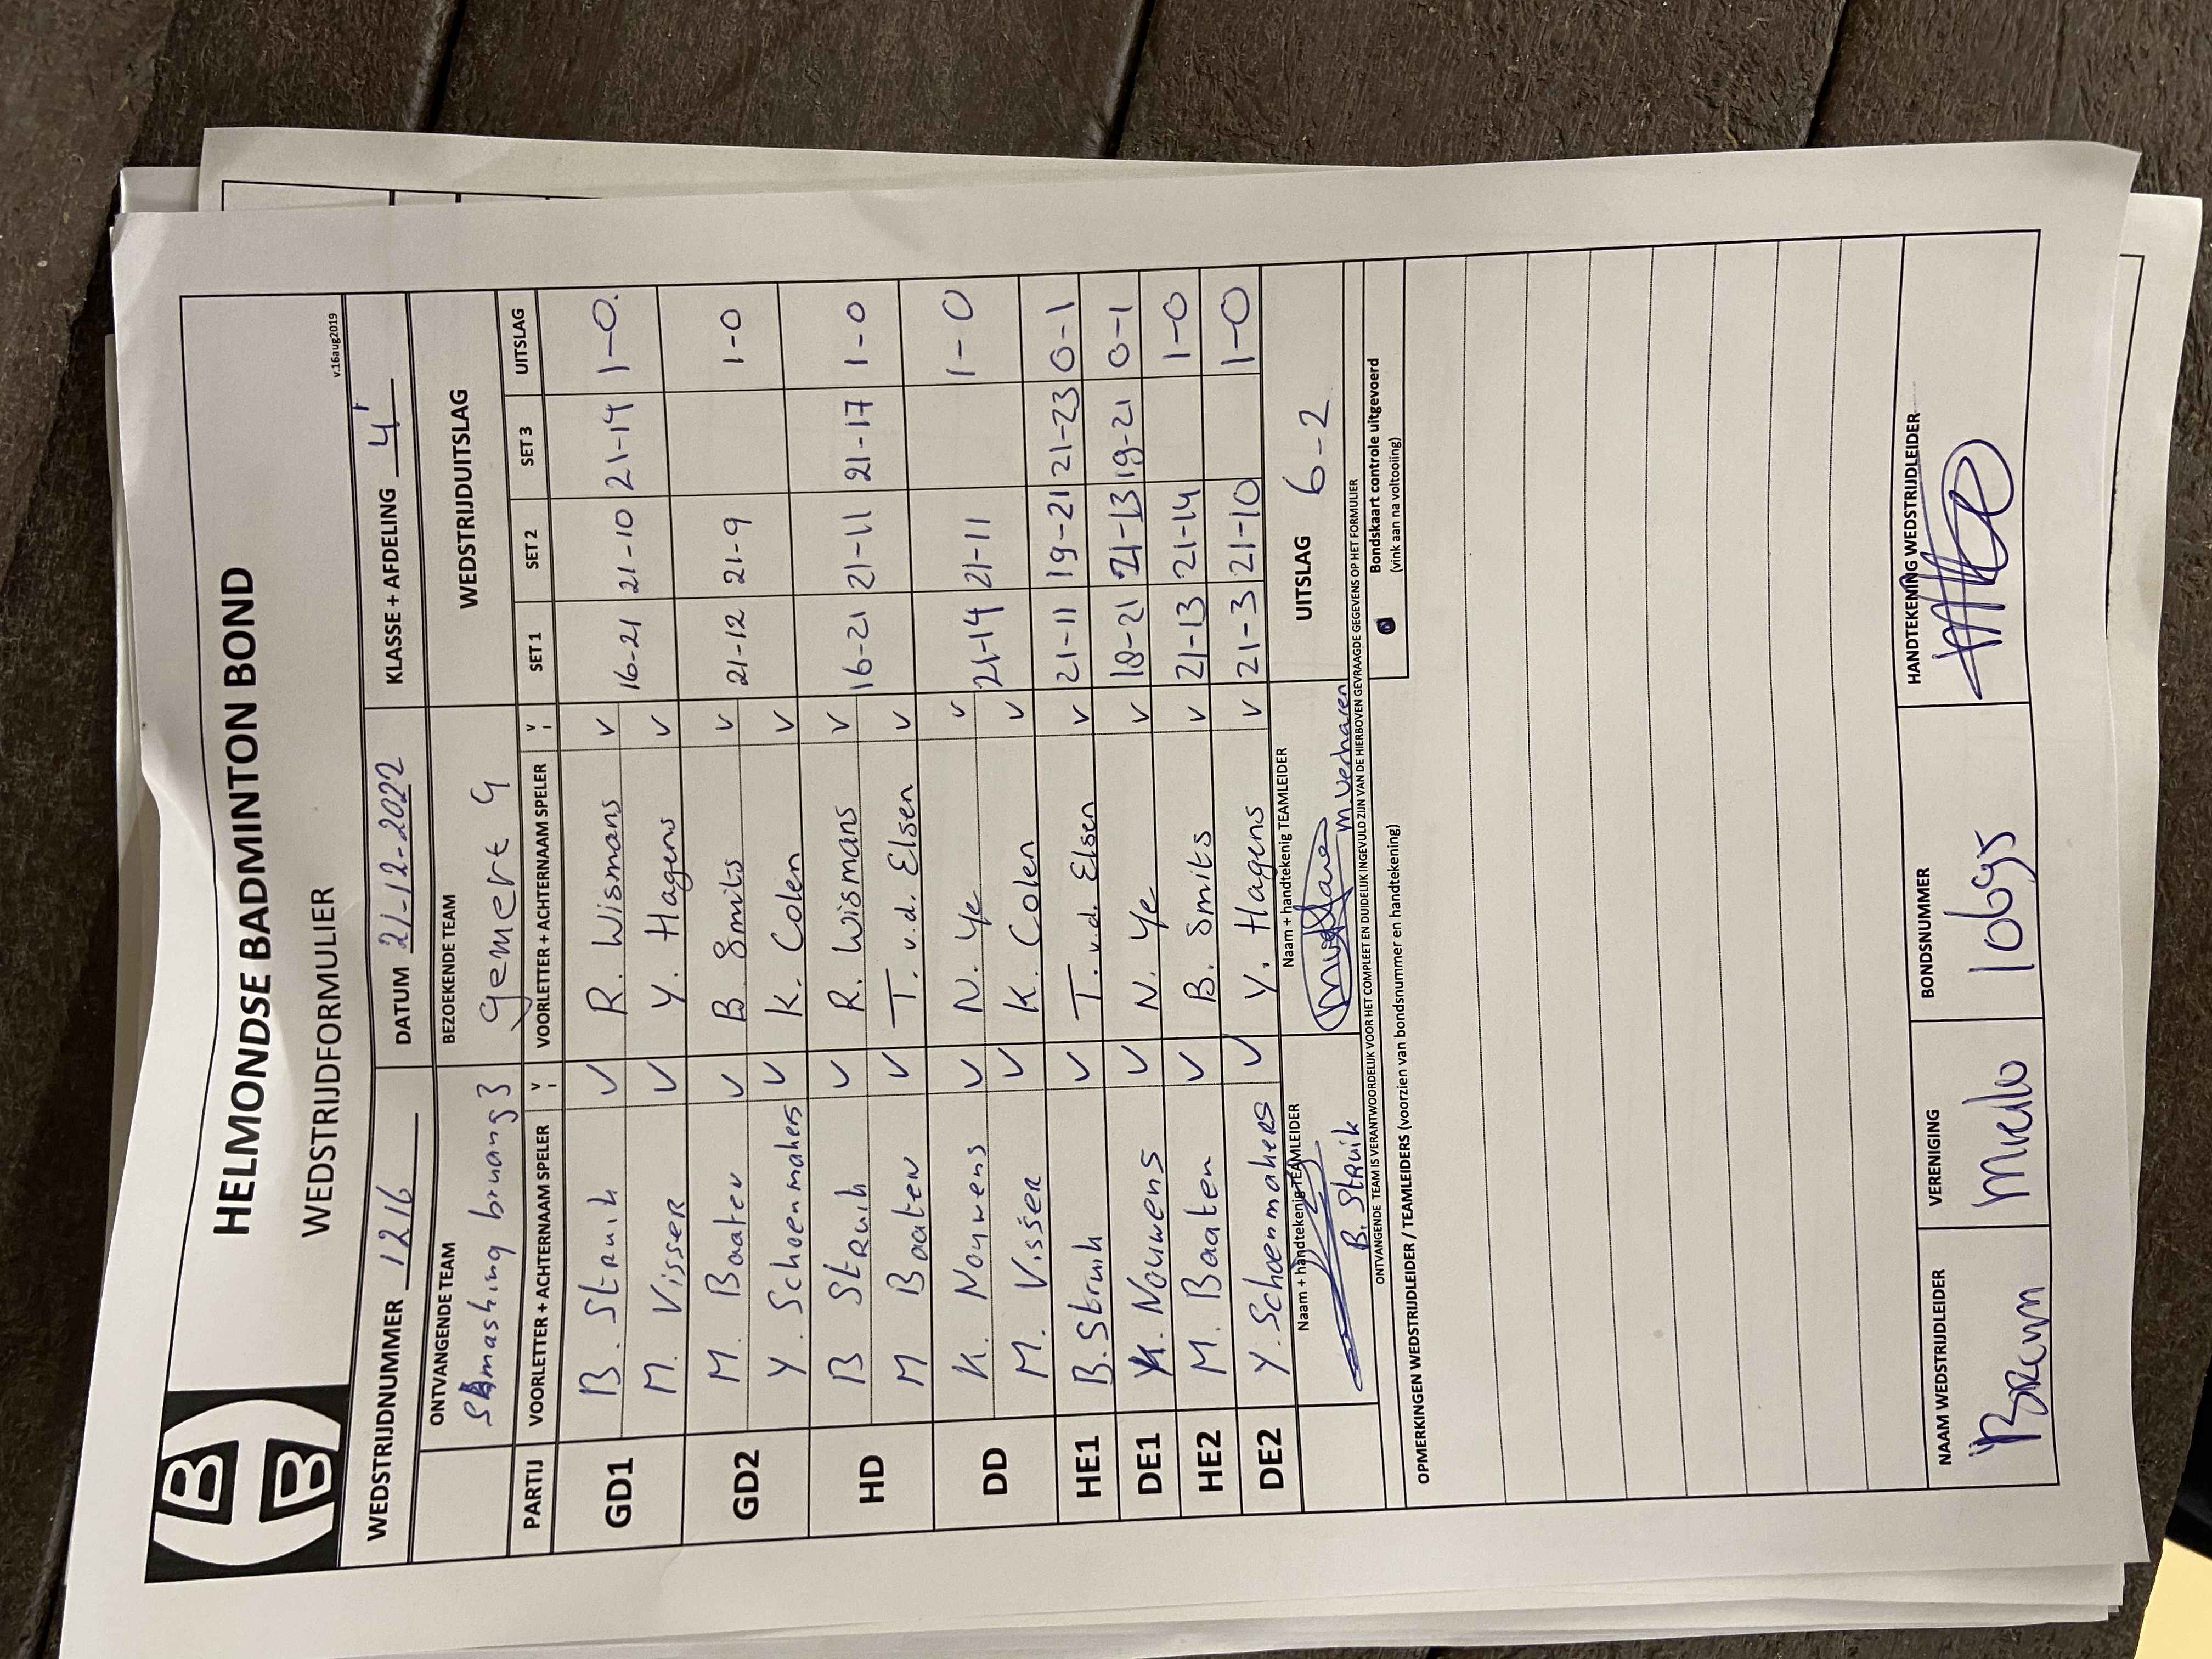 HELMONDSE BADMINTON BOND
WEDSTRIJDFORMULIER
v.16aug2019
WEDSTRIJDNUMMER 1216 DATUM 21-12-2022 KLASSE + AFDELING 4
ONTVANGENDE TEAM BEZOEKENDE TEAM WEDSTRIJDUITSLAG
Smashing bruang 3 Gemert 4
PARTIJ VOORLETTER + ACHTERNAAM SPELER V VOORLETTER + ACHTERNAAM SPELER V SET 1 SET 2 SET 3 UITSLAG
GD1 B. Struik V R. Wismans V 16-21 21-10 21-14 1-0.
M. Visser V Y. Hagens V
GD2 M. Baaten V B. Smits V 21-12 21-9 1-0
Y. Schoenmakers V K. Colen V
HD B Struik V R. Wismans V 16-21 21-11 21-17 1-0
M Baaten V T. v.d. Elsen V
DD K. Nouwens V N. Ye V 21-14 21-11 1-0
M. Visser V K. Colen V
HE1 B. Struik V T. v.d. Elsen V 21-11 19-21 21-23 0-1
DE1 K. Nouwens V N. Ye V 18-21 21-13 19-21 0-1
HE2 M. Baaten V B. Smits V 21-13 21-14 1-0
DE2 Y. Schoenmakers V Y. Hagens V 21-3 21-10 1-0
Naam + handtekenig TEAMLEIDER Naam + handtekenig TEAMLEIDER UITSLAG 6-2
B. Struik M. Verharen
ONTVANGENDE TEAM IS VERANTWOORDELIJK VOOR HET COMPLEET EN DUIDELIJK INGEVULD ZIJN VAN DE HIERBOVEN GEVRAAGDE GEGEVENS OP HET FORMULIER
Bondskaart controle uitgevoerd
(vink aan na voltooling)
OPMERKINGEN WEDSTRIJDLEIDER / TEAMLEIDERS (voorzien van bondsnummer en handtekening)
NAAM WEDSTRIJDLEIDER VERENIGING BONDSNUMMER HANDTEKENING WEDSTRIJDLEIDER
Bram Mierlo 10695